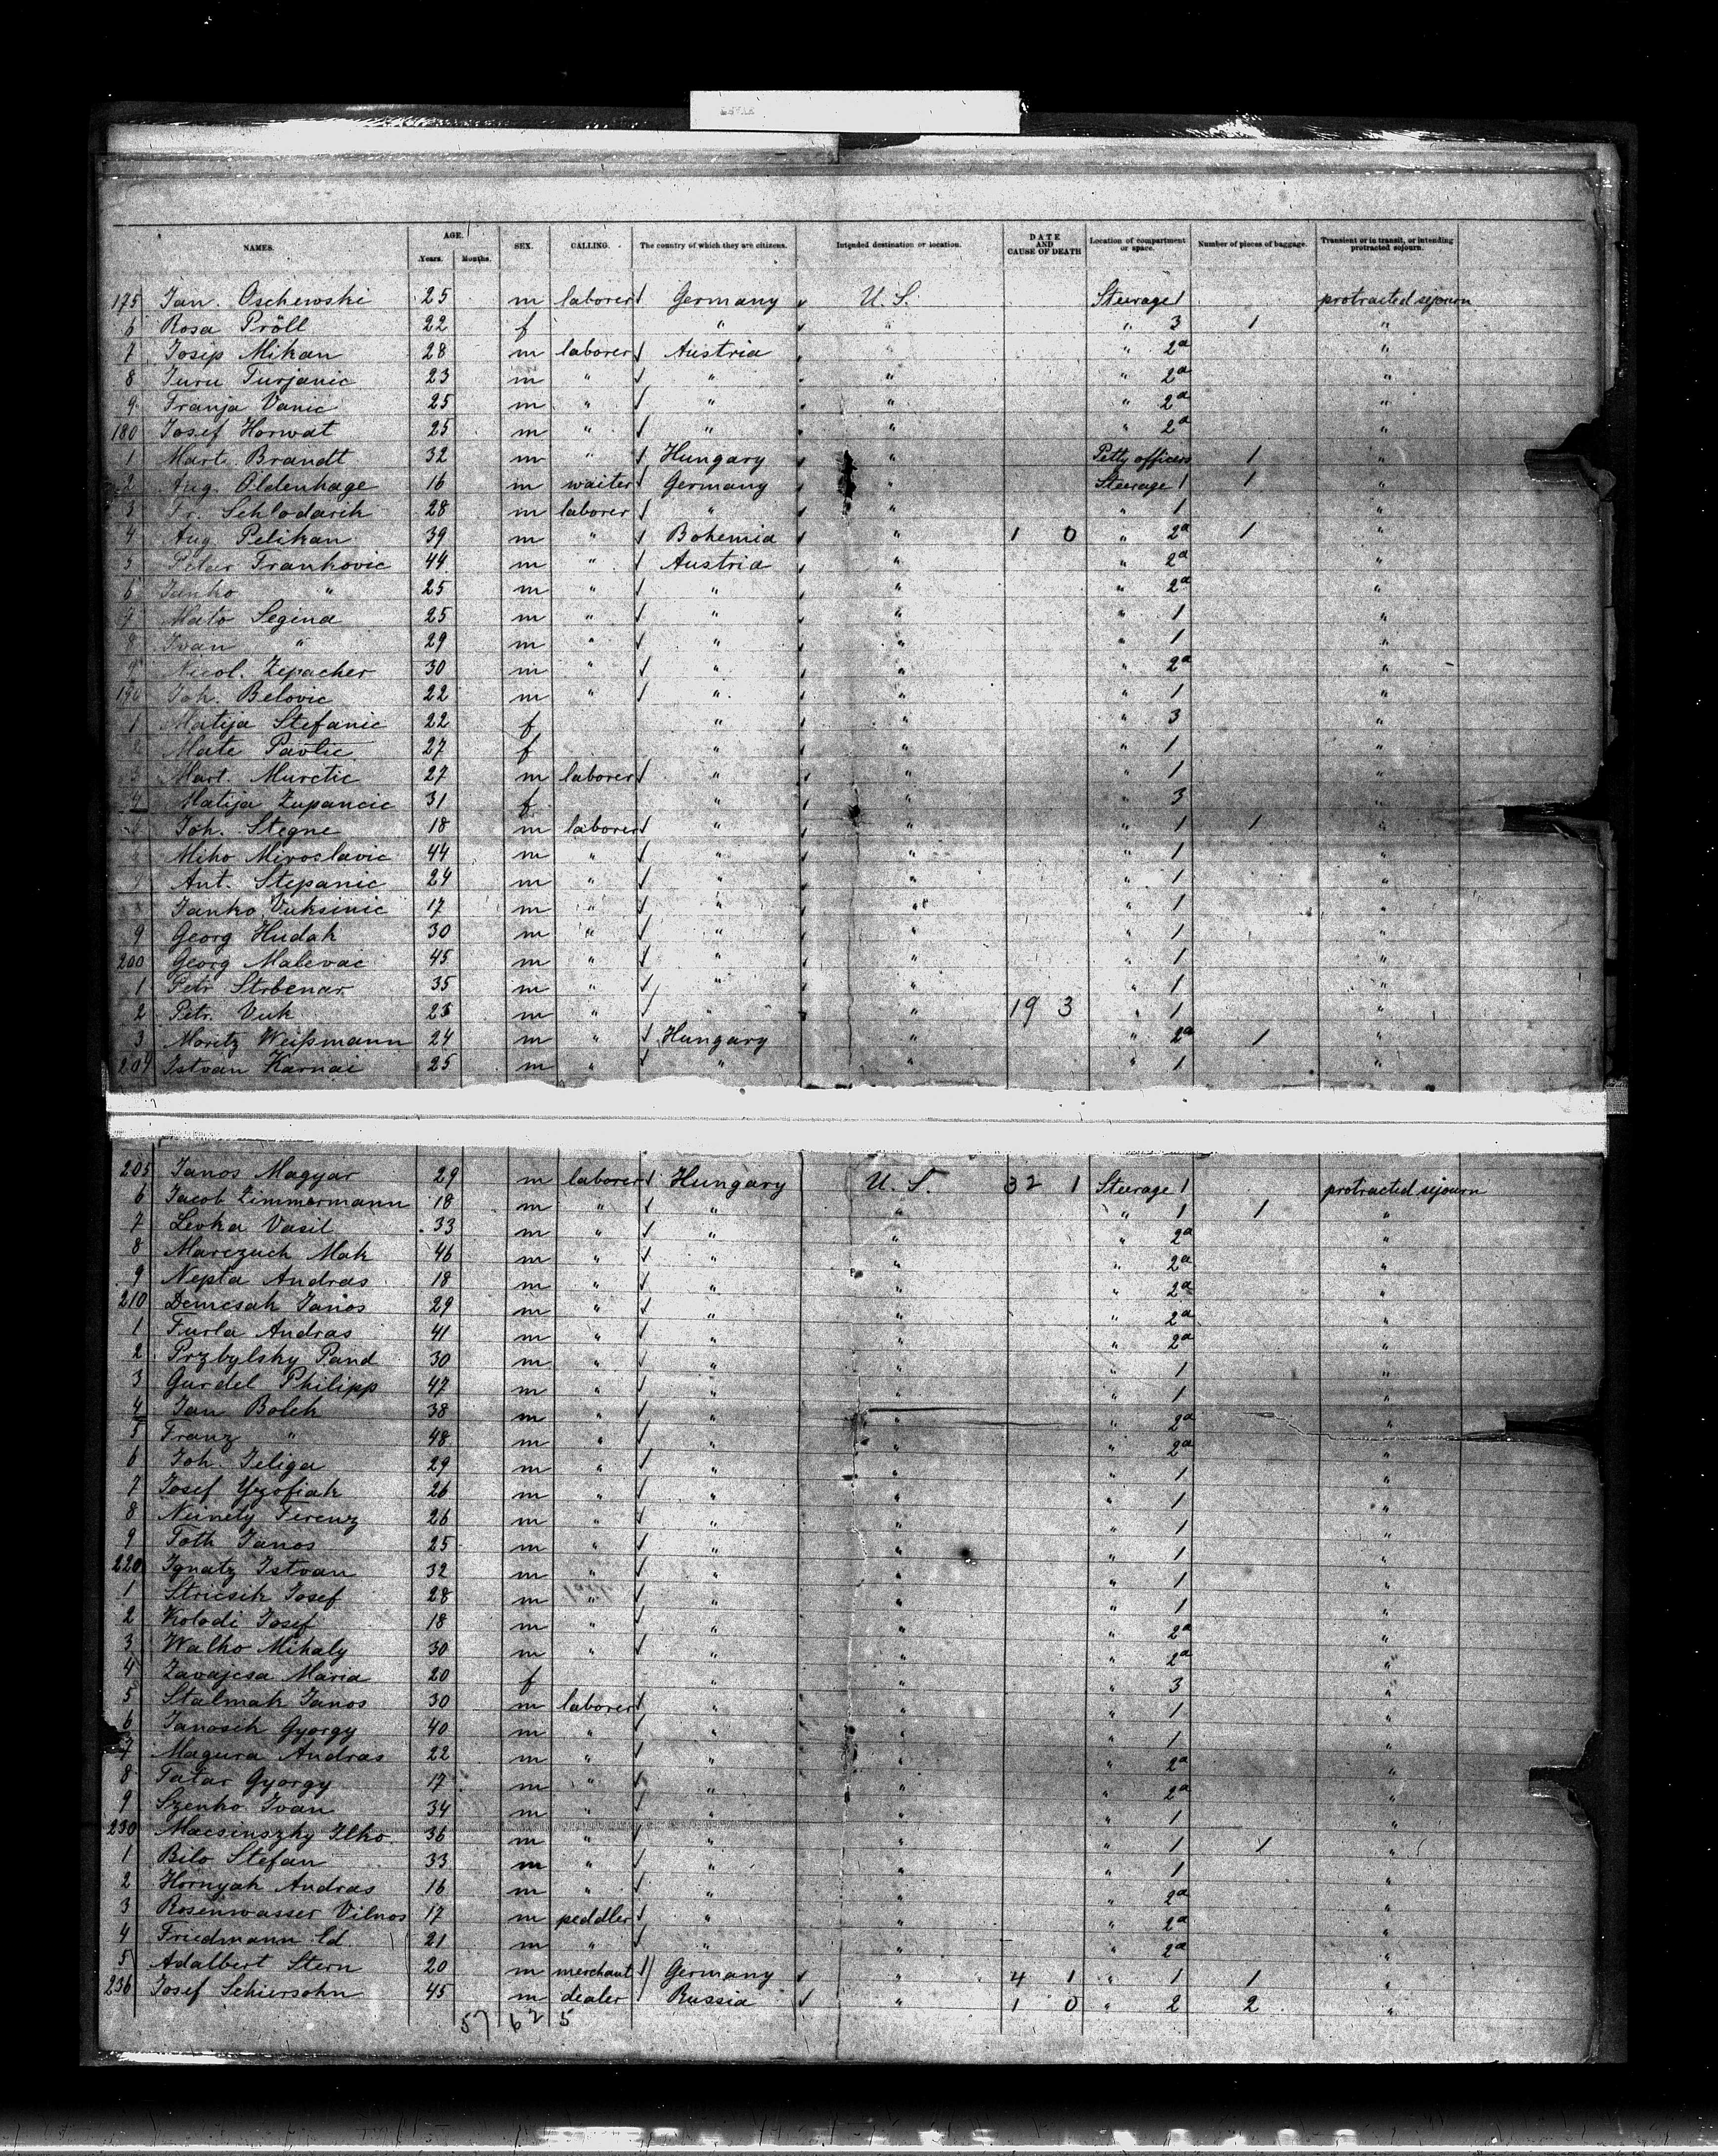 NAMES. AGE. Years. Months. SEX. CALLING. The country of which they are citizens. Intended destination or location. DATE AND CAUSE OF DEATH Location of compartment or space. Number of pieces of baggage. Transient or in transit, or intending protracted sejourn.
175 Jan. Oschewski 25 m laborer Germany U.S. Steerage 1 protracted sejourn
6 Rosa Pröll 22 f " " " 3 1 "
7 Josip Mikan 28 m laborer Austria " " 2a "
8 Juru Turjanic 23 m " " " " 2a "
9 Franja Vanic 25 m " " " " 2a "
180 Josef Horwat 25 m " " " " 2a "
1 Mart. Brandt 32 m " Hungary " Petty officers 1 "
2 Aug. Oldenhage 16 m waiter Germany " Steerage 1 1 "
3 Fr. Schlodarik 28 m laborer " " " 1 "
4 Aug. Pelikan 39 m " Bohemia " 1 0 " 2a 1 "
5 Petar Frankovic 44 m " Austria " " 2a "
6 Janko " 25 m " " " " 2a "
7 Mato Segina 25 m " " " " 1 "
8 Ivan " 29 m " " " " 1 "
9 Nicol. Zepacher 30 m " " " " 2a "
190 Joh. Belovic 22 m " " " " 1 "
1 Matija Stefanic 22 f " " " 3 "
2 Mate Pavlic 27 f " " " 1 "
3 Mart. Muretic 27 m laborer " " " 1 "
4 Matija Zupancic 31 f " " " 3 "
Joh. Stegne 18 m laborer " " " 1 1 "
Miko Miroslavic 44 m " " " " 1 "
Ant. Stepanic 24 m " " " " 1 "
Janko Vuksinic 17 m " " " " 1 "
9 Georg Hudak 30 m " " " " 1 "
200 Georg Malevac 45 m " " " " 1 "
1 Petr Strbenar 35 m " " " " 1 "
2 Petr. Vuk 23 m " " " 19 3 " 1 "
3 Moritz Weißmann 24 m " Hungary " " 2a 1 "
204 Istvan Karnai 25 m " " " " 1 "
205 Janos Magyar 29 m laborer Hungary U.S. 32 1 Steerage 1 protracted sejourn
6 Jacob Zimmermann 18 m " " " " 1 1 "
7 Levka Vasil 33 m " " " " 2a "
8 Marczuch Mak 46 m " " " " 2a "
9 Nepta Andras 18 m " " " " 2a "
210 Demcsak Janos 29 m " " " " 2a "
1 Furla Andras 41 m " " " " 2a "
2 Przbylsky Pand 30 m " " " " 1 "
3 Gurdel Philipp 47 m " " " " 1 "
4 Jan Bolek 38 m " " " " 2a "
5 Franz " 48 m " " " " 2a "
6 Joh. Jeliga 29 m " " " " 1 "
7 Josef Yezofiak 26 m " " " " 1 "
8 Neinety Ferenz 26 m " " " " 1 "
9 Toth Janos 25 m " " " " 1 "
220 Ignatz Istvan 32 m " " " " 1 "
1 Stricsik Josef 28 m " " " " 1 "
2 Kolodi Josef 18 m " " " " 2a "
3 Walko Mihaly 30 m " " " " 2a "
4 Zavajcsa Maria 20 f " " " 3 "
5 Stalmak Janos 30 m laborer " " " 1 "
6 Janosik Gyorgy 40 m " " " " 1 "
7 Magura Andras 22 m " " " " 2a "
8 Tatar Gyorgy 17 m " " " " 2a "
9 Szenko Ivan 34 m " " " " 1 "
230 Macsinszky Ilko 36 m " " " " 1 1 "
1 Bilo Stefan 33 m " " " " 1 "
2 Hornyak Andras 16 m " " " " 2a "
3 Rosenwasser Vilmos 17 m peddler " " " 2a "
4 Friedmann Ed. 21 m " " " " 2a "
5 Adalbert Stern 20 m merchant Germany " 4 1 " 1 1 "
236 Josef Schiersohn 45 m dealer Russia " 1 0 " 2 2 "
57 62 5